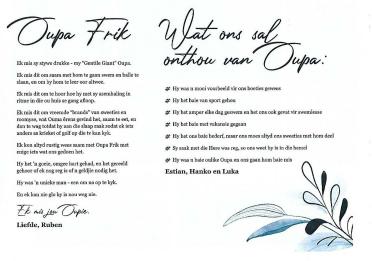 Oupa Frik
Ek mis sy stywe drukke - my "Gentle Giant" Oupa.
Ek mis dit om saam met hom te gaan swem en balle te
slaan, en om by hom te leer oor allwee.
Ek mis dit om te hoor hoe hy met sy asemhaling in
ritme in die ou huis se gang afloop.
Ek mis dit om vreemde "brands" van sweeties en
roomyse, wat Ouma êrens gevind het, saam te eet, en
dan te wag totdat hy aan die slaap raak sodat ek iets
anders as krieket of golf op die tv kan kyk.
Ek kon altyd rustig wees saam met Oupa Frik met
enige iets wat ons gedoen het.
Hy het 'n goeie, omgee hart gehad, en het gereeld
gehoor of ek nog reg is of a geldjie nodig het.
Hy was 'n unieke man - een om na op te kyk.
En ek kan nie glo hy is nou weg nie.
Ek mis jou Oupie.
Liefde, Ruben
Wat ons sal
onthou van Oupa:
# Hy was n mooi voorbeeld vir ons boeties gewees
# Hy het baie van sport gehou
# Hy het amper elke dag geswem en het ons ook gevat vir swemlesse
# Hy het baie met vakansie gegaan
# Hy het ons baie bederf, maar ons moes altyd ons sweeties met hom deel
# Sy saak met die Here was reg, so ons weet hy is in die hemel
# Hy was n baie oulike Oupa en ons gaan hom baie mis
Estian, Hanko en Luka